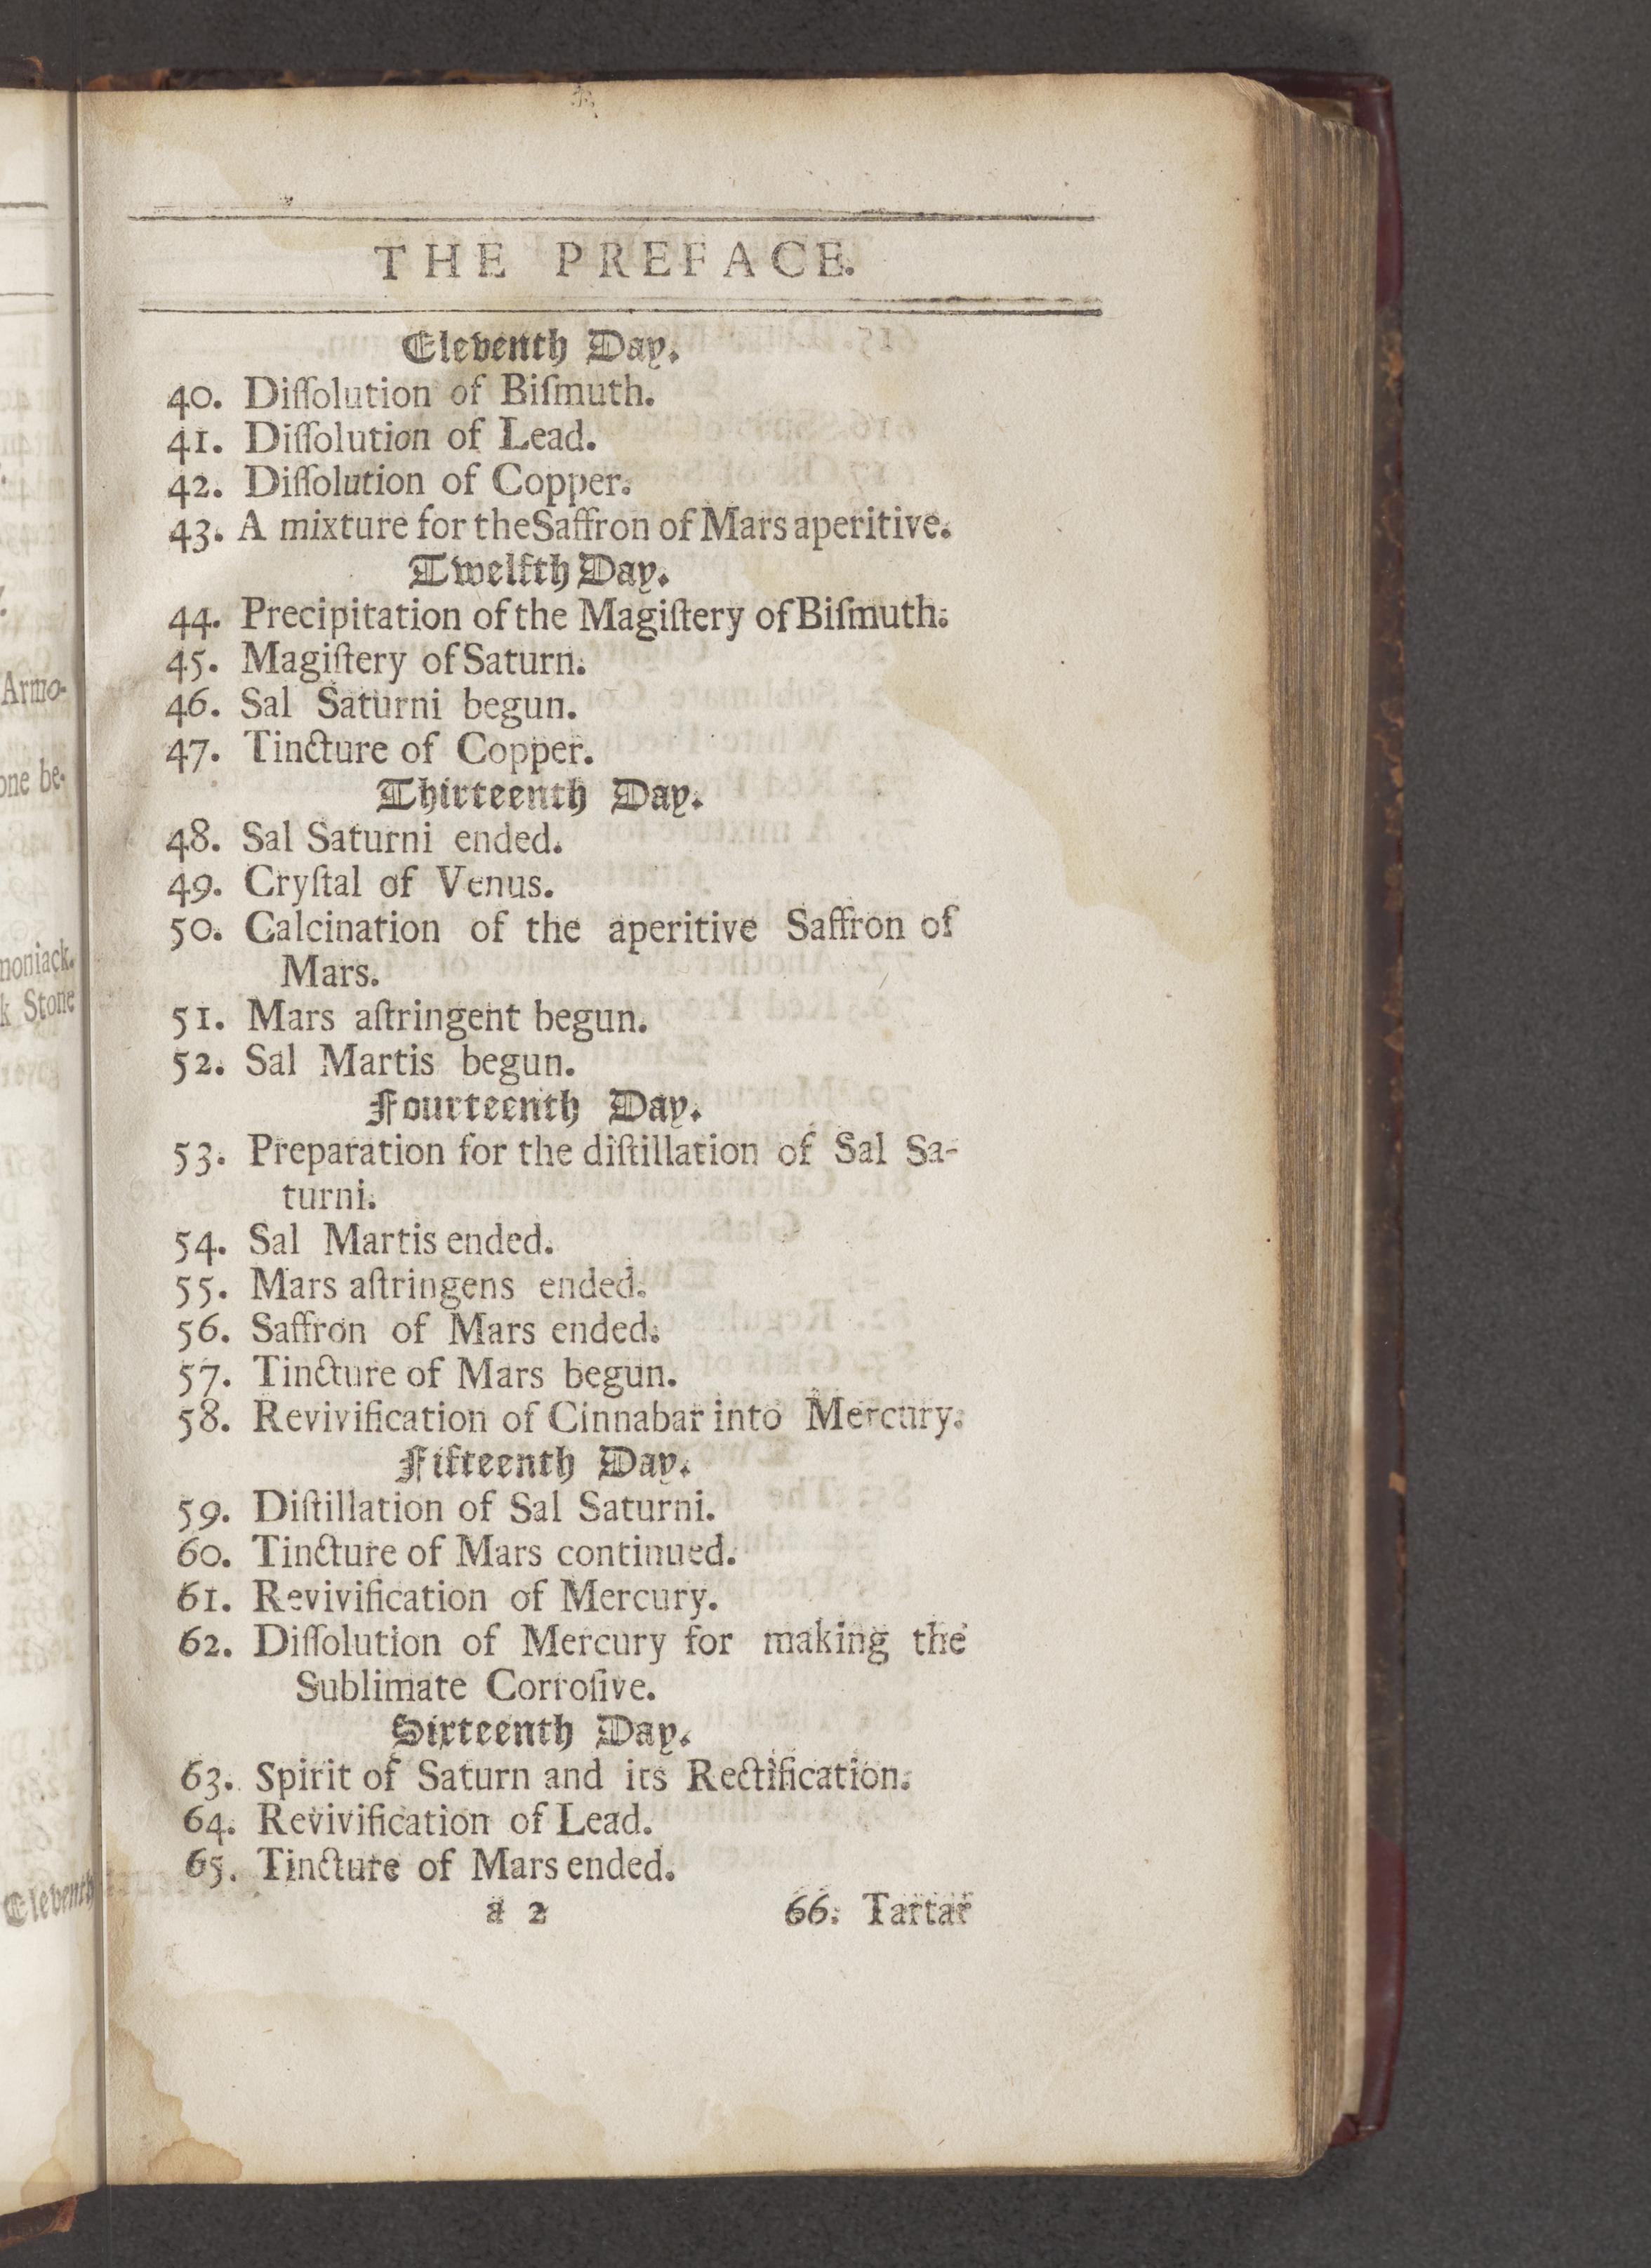 THE PREFACE.
Eleventh Day.
40. Diſſolution of Biſmuth.
41. Diſſolution of Lead.
42. Diſſolution of Copper.
43. A mixture for the Saffron of Mars aperitive.
Twelfth Day.
44. Precipitation of the Magiſtery of Biſmuth.
45. Magiſtery of Saturn.
46. Sal Saturni begun.
47. Tincture of Copper.
Thirteenth Day.
48. Sal Saturni ended.
49. Cryſtal of Venus.
50. Calcination of the aperitive Saffron of
Mars.
51. Mars aſtringent begun.
52. Sal Martis begun.
Fourteenth Day.
53. Preparation for the diſtillation of Sal Sa-
turni.
54. Sal Martis ended.
55. Mars aſtringens ended.
56. Saffron of Mars ended.
57. Tincture of Mars begun.
58. Revivification of Cinnabar into Mercury.
Fifteenth Day.
59. Diſtillation of Sal Saturni.
60. Tincture of Mars continued.
61. Revivification of Mercury.
62. Diſſolution of Mercury for making the
Sublimate Corroſive.
Sixteenth Day.
63. Spirit of Saturn and its Rectification.
64. Revivification of Lead.
65. Tincture of Mars ended.
a 2 66. Tartar
Armo-
one be-
moniack.
k Stone
Eleventh